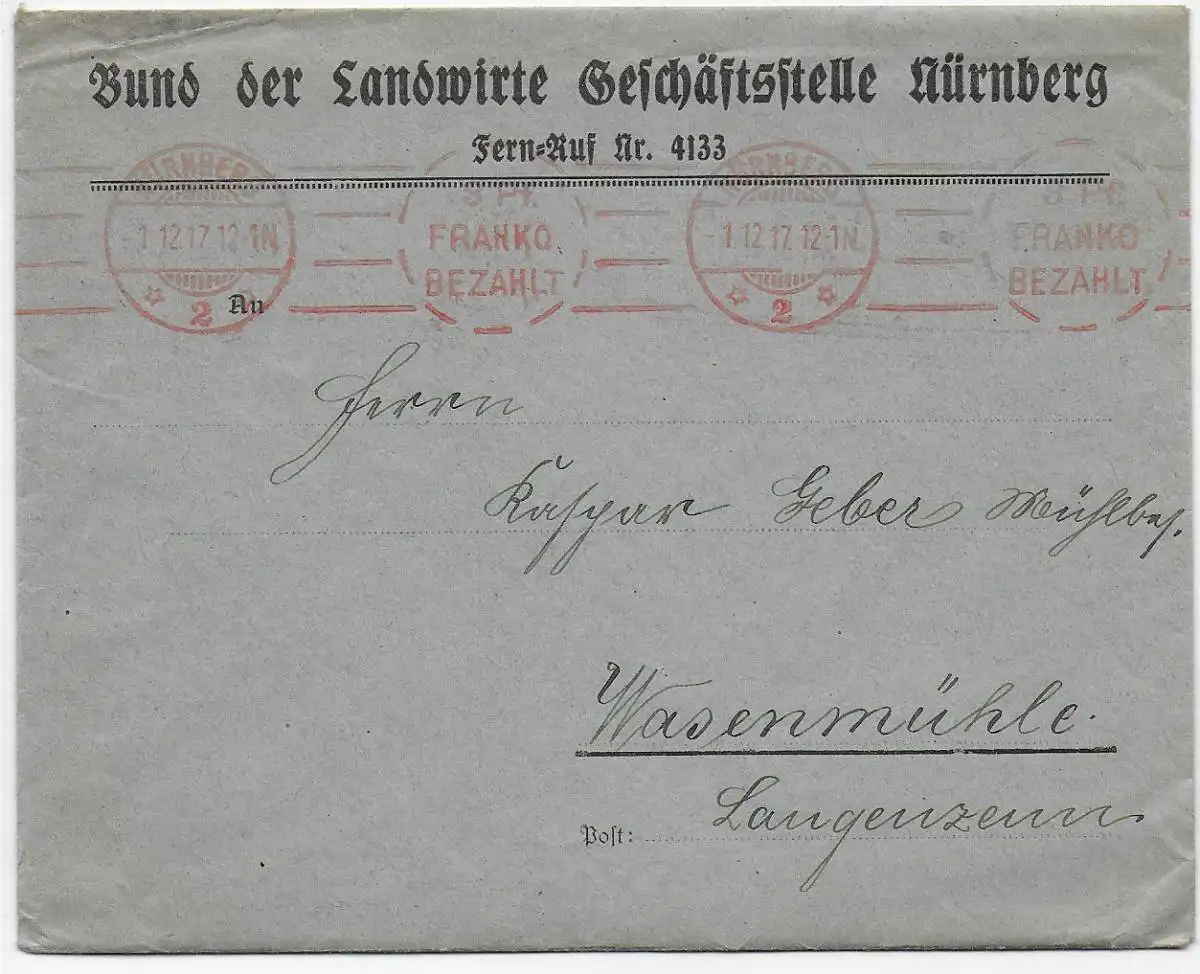 Bund der Landwirte Geschäftsstelle Nürnberg
Fern=Ruf Nr. 4133
NÜRNBERG
-1.12.17.12-1N.
2
3 Pf.
FRANKO
BEZAHLT
NÜRNBERG
-1.12.17.12-1N.
2
3 Pf.
FRANKO
BEZAHLT
An
Herrn
Kaspar Geber Mühlbes.
Wasenmühle.
Post: Langenzenn